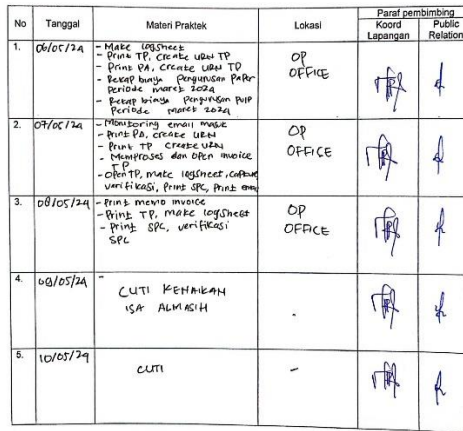 No Tanggal Materi Praktek Lokasi Paraf pembimbing
Koord Lapangan Public Relation
1. 06/05/24 - Make logsheet OP OFFICE
- Print TP, Create URN TP
- Print PA, Create URN TP
- Rekap biaya Pengurusan Paper
Periode maret 2024
- Rekap biaya Pengurusan Pulp
Periode maret 2024
2. 07/05/24 - Monitoring email masuk OP OFFICE
- Print PA, create URN
- Print TP Create URN
- Memproses dan open invoice
TP
- Open TP, make logsheet, capture
verifikasi, Print SPC, Print
3. 08/05/24 - Print memo invoice OP OFFICE
- Print TP, make logsheet
- Print SPC, verifikasi
SPC
4. 09/05/24 -
CUTI KENAIKAN
ISA ALMASIH
-
5. 10/05/24 CUTI -